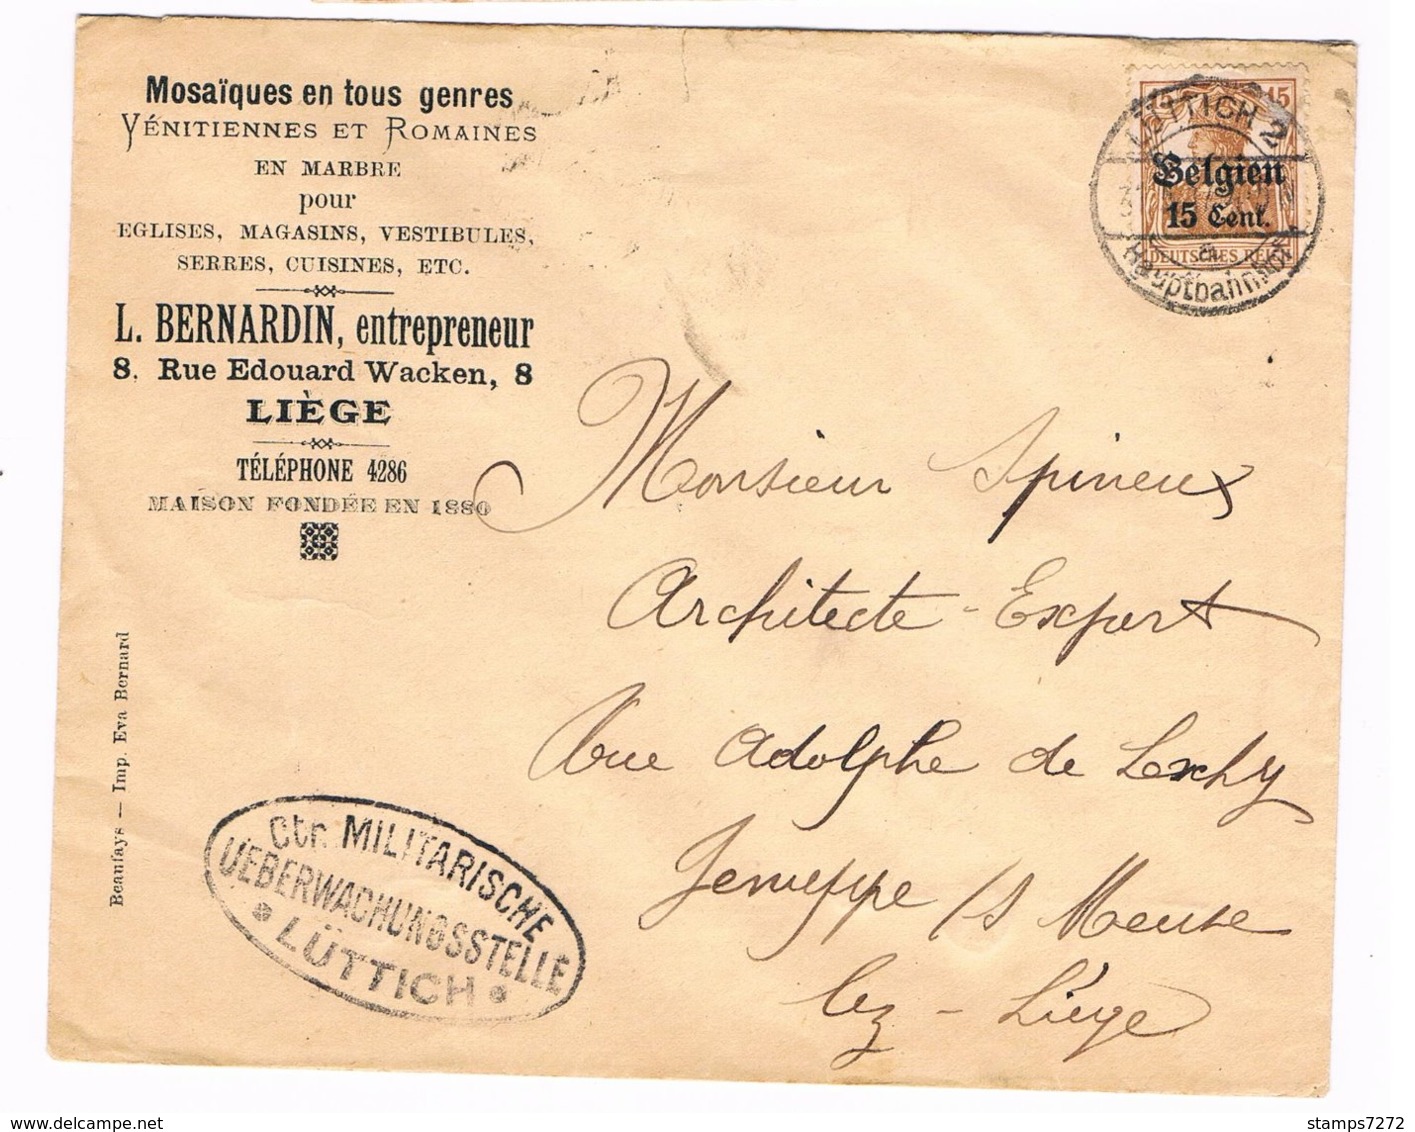 Mosaïques en tous genres
VÉNITIENNES ET ROMAINES
EN MARBRE
pour
EGLISES, MAGASINS, VESTIBULES,
SERRES, CUISINES, ETC.
L. BERNARDIN, entrepreneur
8, Rue Edouard Wacken, 8
LIÈGE
TÉLÉPHONE 4286
MAISON FONDÉE EN 1880
Beaufays — Imp. Eva Bernard
15 15
LÜTTICH 2
Belgien
15 Cent.
DEUTSCHES REICH
a
Hauptbahnhof
Monsieur Spineux
Architecte-Expert
Rue Adolphe de Lexhy
Jemeppe /s Meuse
lez-Liége
Ctr. MILITARISCHE
UEBERWACHUNGSSTELLE
LÜTTICH
delcampe.net
stamps7272